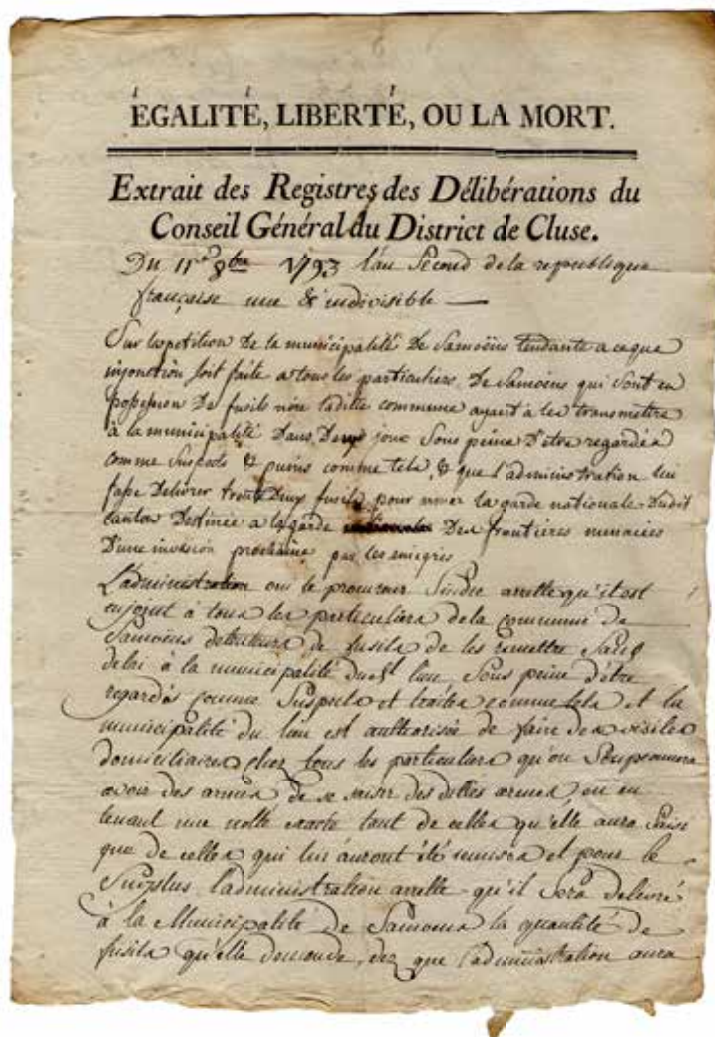 ÉGALITÉ, LIBERTÉ, OU LA MORT.
Extrait des Registres des Délibérations du
Conseil Général du District de Cluse.
Du 11e 8bre 1793 l'an Second de la republique
française une & indivisible
Sur la petition de la municipalité De Samoëns tendante a ceque
injonction soit faite a tous les particuliers De Samoens qui Sont en
possession De fusils laditte commune ayant à les transmettre
à la municipalité Dans Deux jours Sous peine D'etre regardés
comme Suspects & punis comme tels, & que l'administration lui
fasse Delivrer trente Deux fusils pour armer la garde nationale Dudit
canton Destinée a la garde Des frontieres menacées
D'une invasion prochaine par les emigrés
L'administration oui le procureur Sindic arrette qu'il est
enjoint à tous les particuliers dela commune de
Samoëns detenteurs de fusils de les remettre Sans
delai à la municipalité dudt lieu Sous peine d'être
regardés comme Suspects et traités comme tels et la
municipalité du lieu est authorisée de faire des visites
domiciliaires chez tous les particuliers qu'on Soupconnera
avoir des armes de se saisir des dittes armes en en
tenant une notte exacte tant de celles qu'elle aura Saisi
que de celles qui lui auront été remises et pour le
Surplus l'administration arrette qu'il Sera delivré
à la Municipalité de Samoens la quantité de
fusils qu'elle demande, dez que l'administration aura